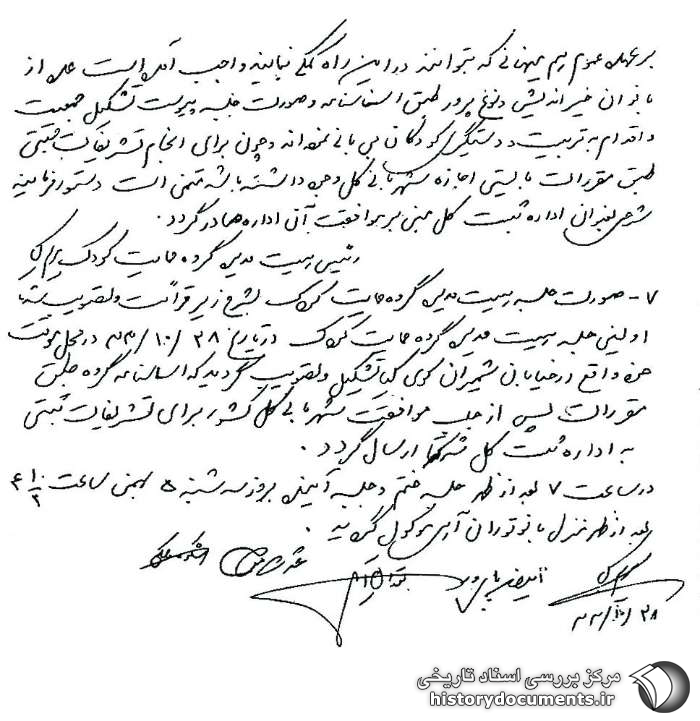 بر عهده عموم هم میهنانی که بتوانند در این راه کمکی نمایند واجب آمده است عده‌ای از
بانوان خیراندیش و نوع پرور طبق اساسنامه و صورت جلسه پیوست تشکیل جمعیت
و اقدام به تربیت و دستگیری کودکان بی بانی نموده‌اند و چون برای انجام تشریفات ثبتی
طبق مقررات بایستی اجازه شهربانی کل وجود داشته باشد متمنی است دستور فرمایند
شرحی بعنوان اداره ثبت کل مبنی بر موافقت آن اداره صادر گردد.
رئیس هیئت مدیره گروه حمایت کودک
۷- صورت جلسه هیئت مدیره گروه حمایت کودک بشرح زیر قرائت و تصویب شد
اولین جلسه هیئت مدیره گروه حمایت کودک در تاریخ ۲۸/۱۰/۳۳ در محل موقت
واقع در خیابان شمیران کوی تشکیل و تصویب گردید که اساسنامه گروه طبق
مقررات پس از جلب موافقت شهربانی کل کشور برای تشریفات ثبتی
به اداره ثبت کل ارسال گردد.
در ساعت ۷ بعد از ظهر جلسه ختم و جلسه آینده بروز سه شنبه ۵ بهمن ساعت
بعد از ظهر منزل بانو توران موکول گردید.
۲۸/۱۰/۳۳
مرکز بررسی اسناد تاریخی
historydocuments.ir